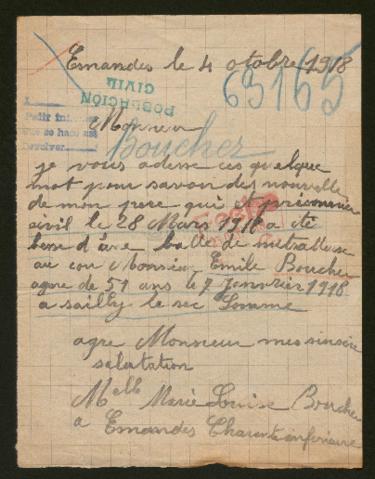 Emandes le 4 otobre 1918
63165
POBLACIÓN
CIVIL
Monsieur
Boucher
je vous adresse ces quelque
mot pour savoir des nouvelle
de mon pere qui et prisonnier
sivil le 28 Mars 1918 a été
d'une balle de mitralleuse
au cou Monsieur Emile Boucher
agere de 51 ans le 7 Janvier 1918
a sailly le sec Somme
agre Monsieur mes sinsere
salutation
Melle Marie Louise Boucher
a Emandes Charente inferieure